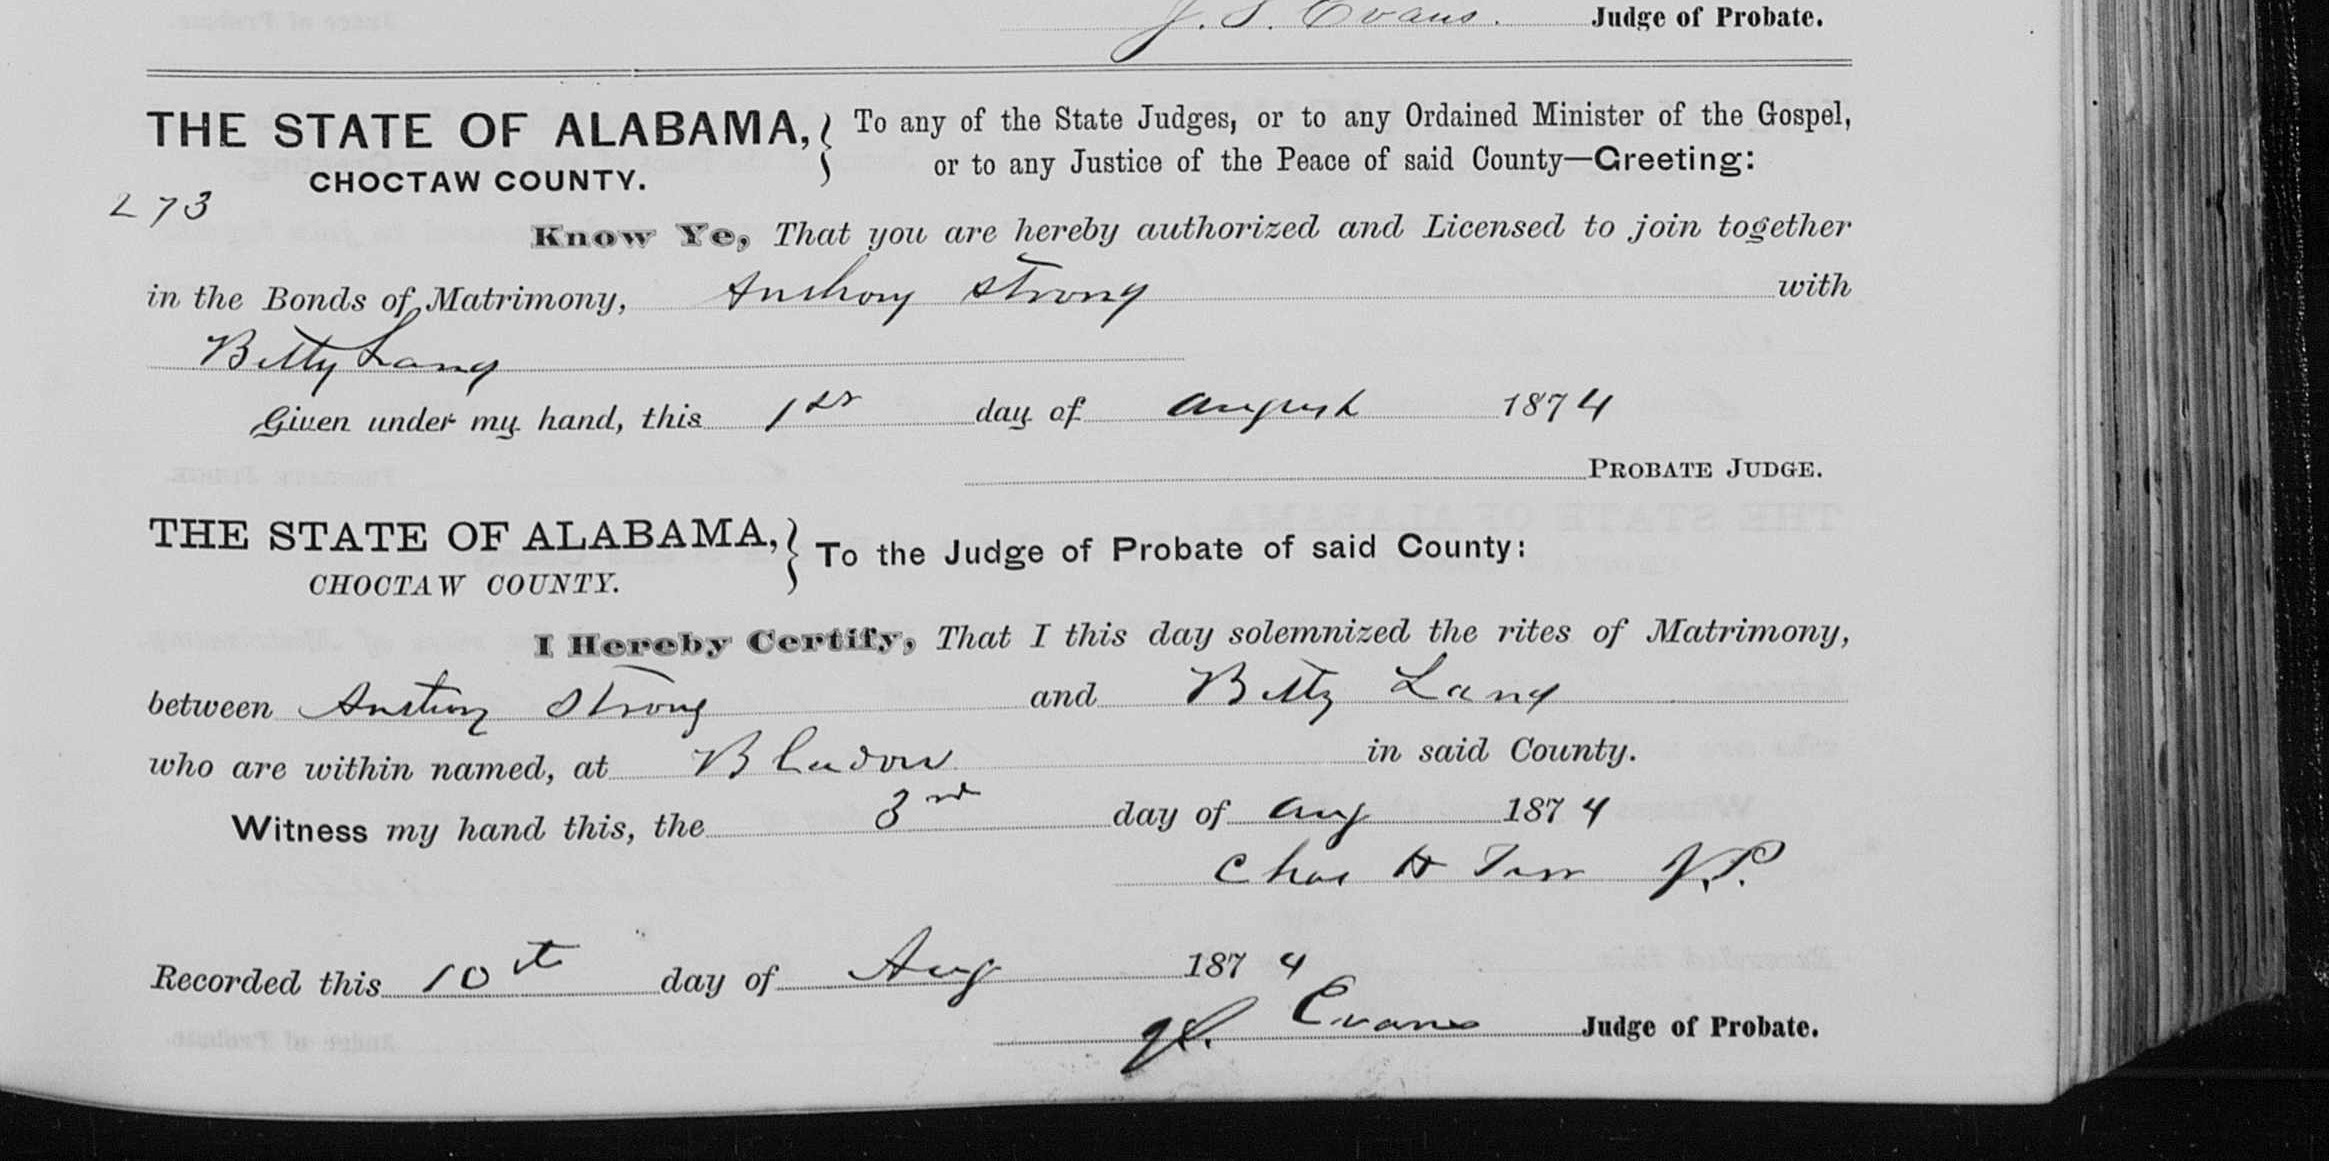 J. S. Evans. Judge of Probate.
THE STATE OF ALABAMA, To any of the State Judges, or to any Ordained Minister of the Gospel,
CHOCTAW COUNTY. or to any Justice of the Peace of said County—Greeting:
273
Know Ye, That you are hereby authorized and Licensed to join together
in the Bonds of Matrimony, Anthony Strong with
Betty Lang
Given under my hand, this 1st day of August 1874
PROBATE JUDGE.
THE STATE OF ALABAMA, To the Judge of Probate of said County:
CHOCTAW COUNTY.
I Hereby Certify, That I this day solemnized the rites of Matrimony,
between Anthony Strong and Betty Lang
who are within named, at Bladon in said County.
Witness my hand this, the 3rd day of Aug 1874
Chas H J.P.
Recorded this 10th day of Aug 1874
Evans Judge of Probate.